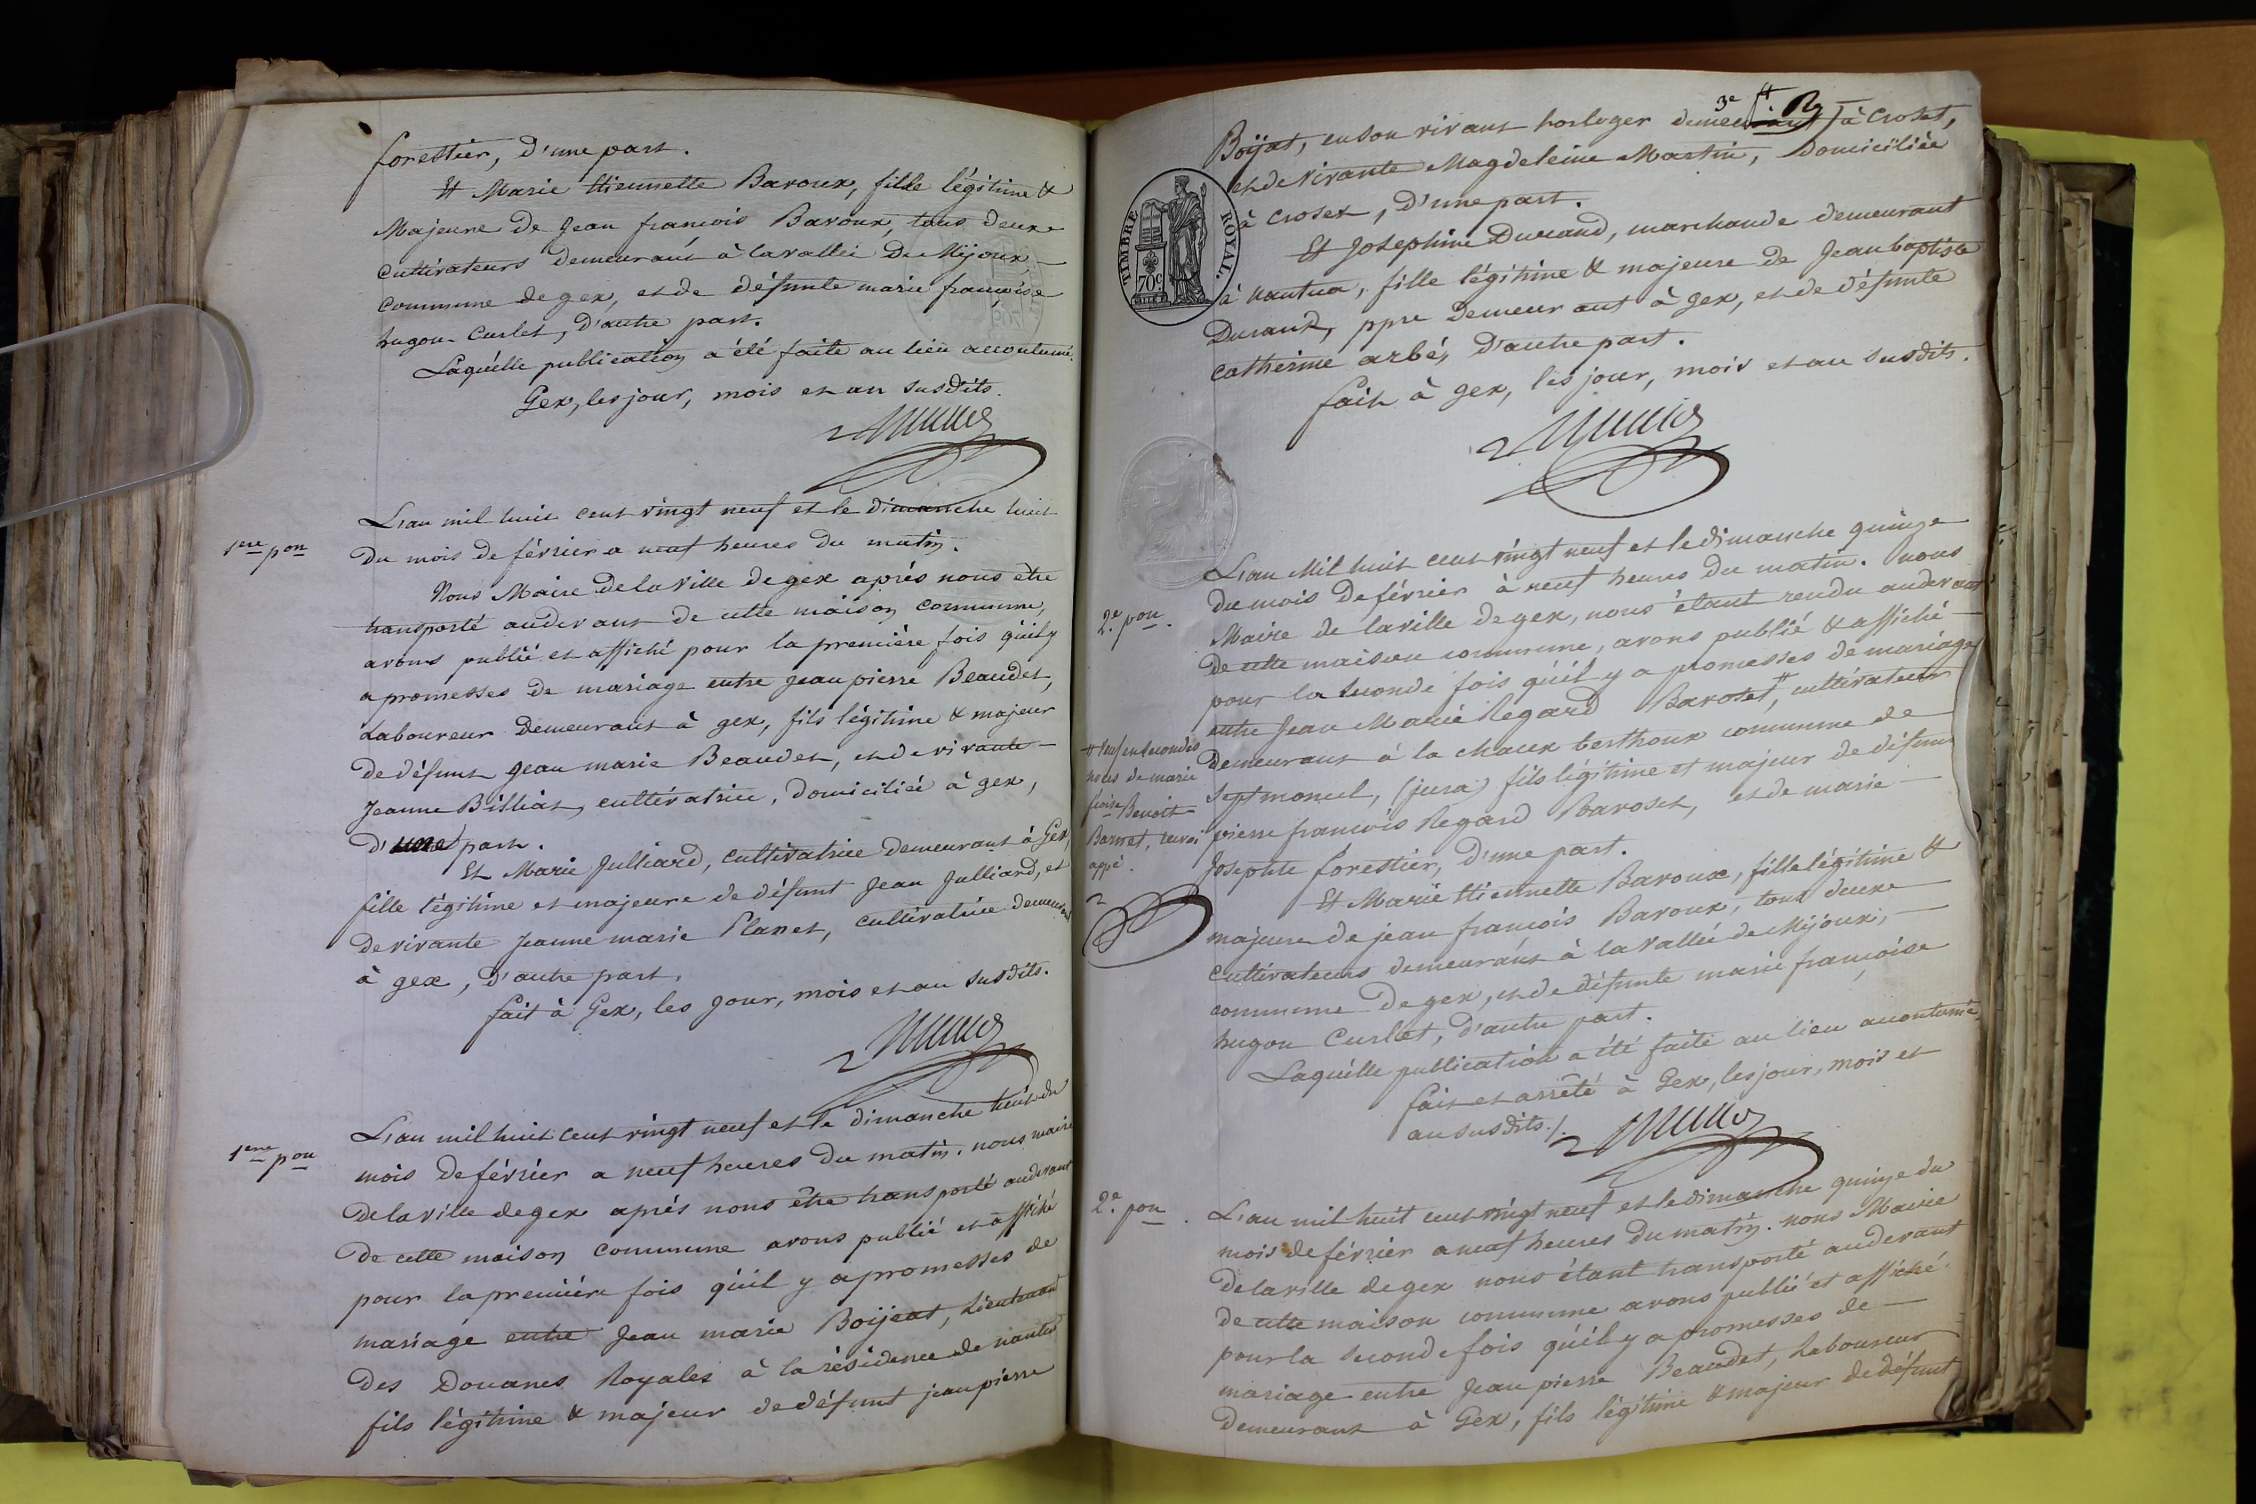 forestier, d'une part.
Et Marie Etiennette Baroux, fille légitime &
Majeure de Jean francois Baroux, tous deux
cultivateurs demeurant à la vallée de Mijoux
commune de gex, et de défunte marie françoise
hugon Curlet, d'autre part.
Laquelle publication a été faite au lieu accoutumé.
Gex, les jour, mois et an susdits.
1ere pon
L'an mil huit cent vingt neuf et le dimanche huit
du mois de février a neuf heures du matin.
Nous Maire de la ville de gex après nous être
transporté audevant de cette maison commune,
avons publié et affiché pour la première fois qu'il y
a promesses de mariage entre Jean pierre Beaudet,
Laboureur demeurant à gex, fils légitime & majeur
de défunt Jean marie Beaudet, et de vivante
Jeanne Billiat, cultivatrice, domiciliée à gex,
d'une part.
Et Marie Julliard, cultivatrice demeurant à Gex,
fille légitime et majeure de défunt Jean Julliard, et
de vivante Jeanne marie Planet, cultivatrice demeurant
à gex, d'autre part.
fait à Gex, les jour, mois et an susdits.
1ere pon
L'an mil huit cent vingt neuf et le dimanche huit du
mois de février a neuf heures du matin. nous maire
de la ville de gex après nous être transporté audevant
de cette maison commune avons publié et affiché
pour la première fois qu'il y a promesses de
mariage entre Jean marie Boijeat, Lieutenant
des Douanes Royales à la résidence de nantua
fils légitime & majeur de défunt jean pierre
3e
Boijat, en son vivant horloger demeurant à Crozet,
et de vivante Magdeleine Martin, domiciliée
à crozet, d'une part.
Et Josephine Durand, marchande demeurant
à nantua, fille légitime & majeure de Jean baptiste
Durand, ppre demeurant à gex, et de défunte
catherine arbéz d'autre part.
fait à gex, les jour, mois et an susdits.
TIMBRE ROYAL.
70c.
2.e pon.
L'an Mil huit cent vingt neuf et le dimanche quinze
du mois de février à neuf heures du matin. nous
Maire de la ville de gex, nous étant rendu audevant
de cette maison commune, avons publié & affiché
pour la seconde fois qu'il y a promesses de mariage
entre Jean Marie Regard Barotet #, cultivateur
demeurant à la chaux berthoux commune de
septmoncel, (jura) fils légitime et majeur de défunt
pierre francois Regard Baroset, et de marie
Josephte forestier, d'une part.
# veuf en secondes
noces de marie
froise Benoit
Barnet, renvoi
appé.
Et Marie Etiennette Baroux, fille légitime &
majeure de jean francois Baroux, tous deux
cultivateurs demeurant à la vallée de Mijoux,
commune de gex, et de défunte marie françoise
hugon Curlet, d'autre part.
Laquelle publication a été faite au lieu accoutumé.
fait et arrêté à Gex, les jour, mois et
an susdits./.
2.e pon.
L'an mil huit cent vingt neuf et le dimanche quinze du
mois de février a neuf heures du matin. nous Maire
de la ville de gex nous étant transporté audevant
de cette maison commune avons publié et affiché
pour la seconde fois qu'il y a promesses de
mariage entre Jean pierre Beaudet, Laboureur
demeurant à Gex, fils légitime & majeur de défunt